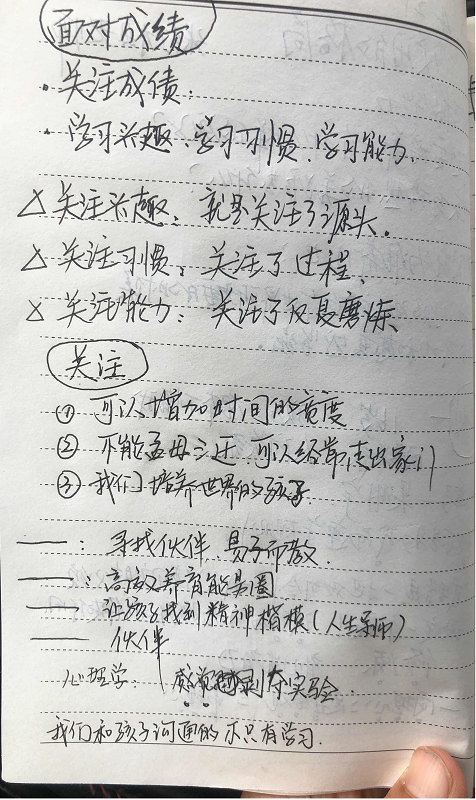 面对成绩
· 关注成绩:
· 学习兴趣、学习习惯、学习能力.
△ 关注兴趣: 就是关注了源头.
△ 关注习惯: 关注了过程.
△ 关注能力: 关注了反复磨炼
关注
① 可以增加时间的宽度
② 不能孟母三迁.可以经常走出家门
③ 我们培养世界的孩子
——: 寻找伙伴.易子而教.
——: 高级养育能量圈
—— 让孩子找到精神楷模(人生导师)
—— 伙伴
心理学: 感觉剥夺实验.
我们和孩子沟通的不只有学习.